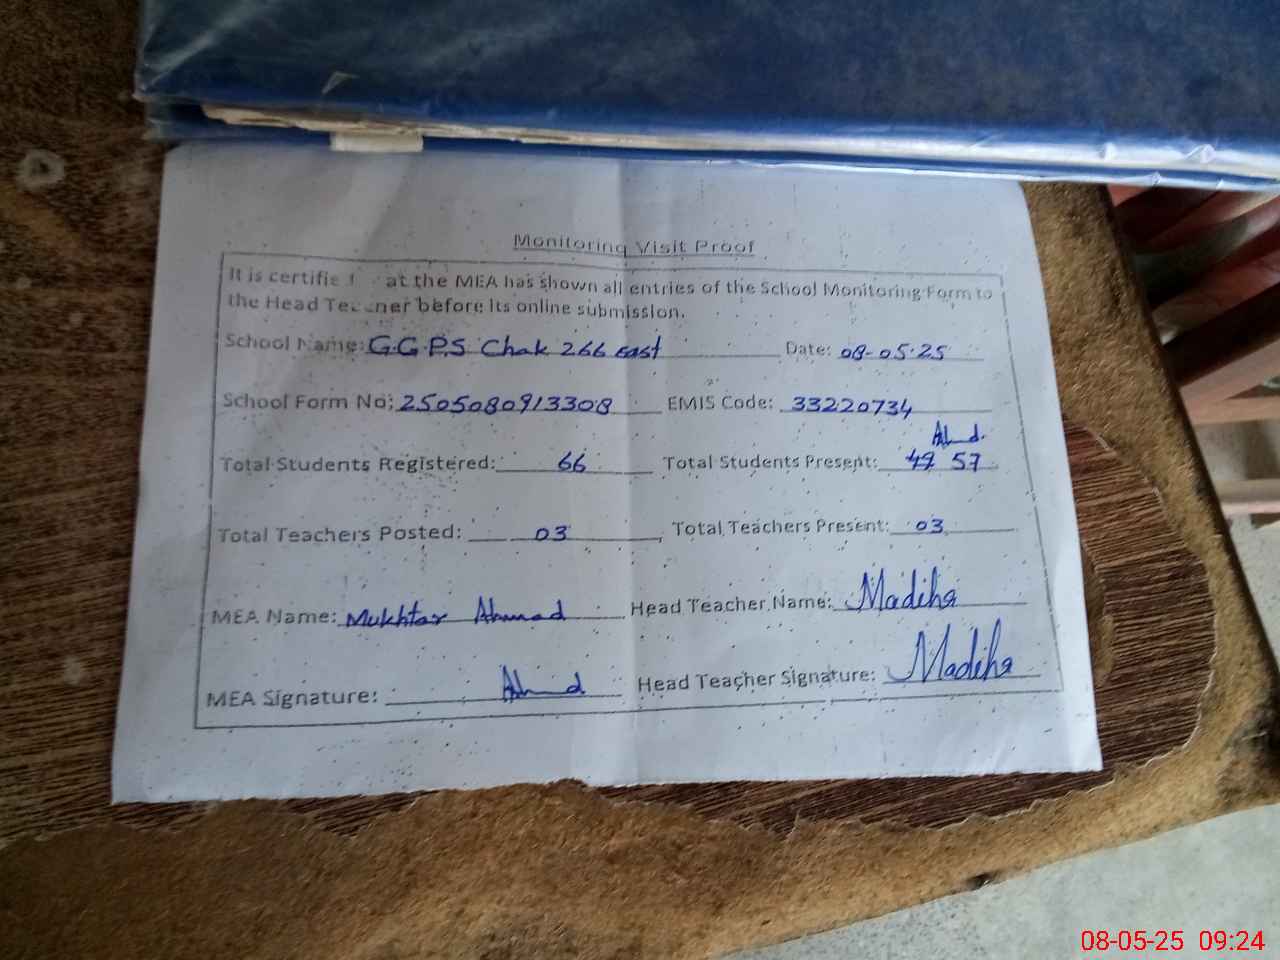 Monitoring Visit Proof
It is certifie at the MEA has shown all entries of the School Monitoring Form to
the Head Teacher before its online submission.
School Name: G.G.P.S Chak 266 east Date: 08-05-25
School Form No: 2505080913308 EMIS Code: 33220734
Ahmd.
Total Students Registered: 66 Total Students Present: 57
Total Teachers Posted: 03 Total Teachers Present: 03
MEA Name: Mukhtar Ahmad Head Teacher Name: Madiha
MEA Signature: Ahmd Head Teacher Signature: Madiha
08-05-25 09:24